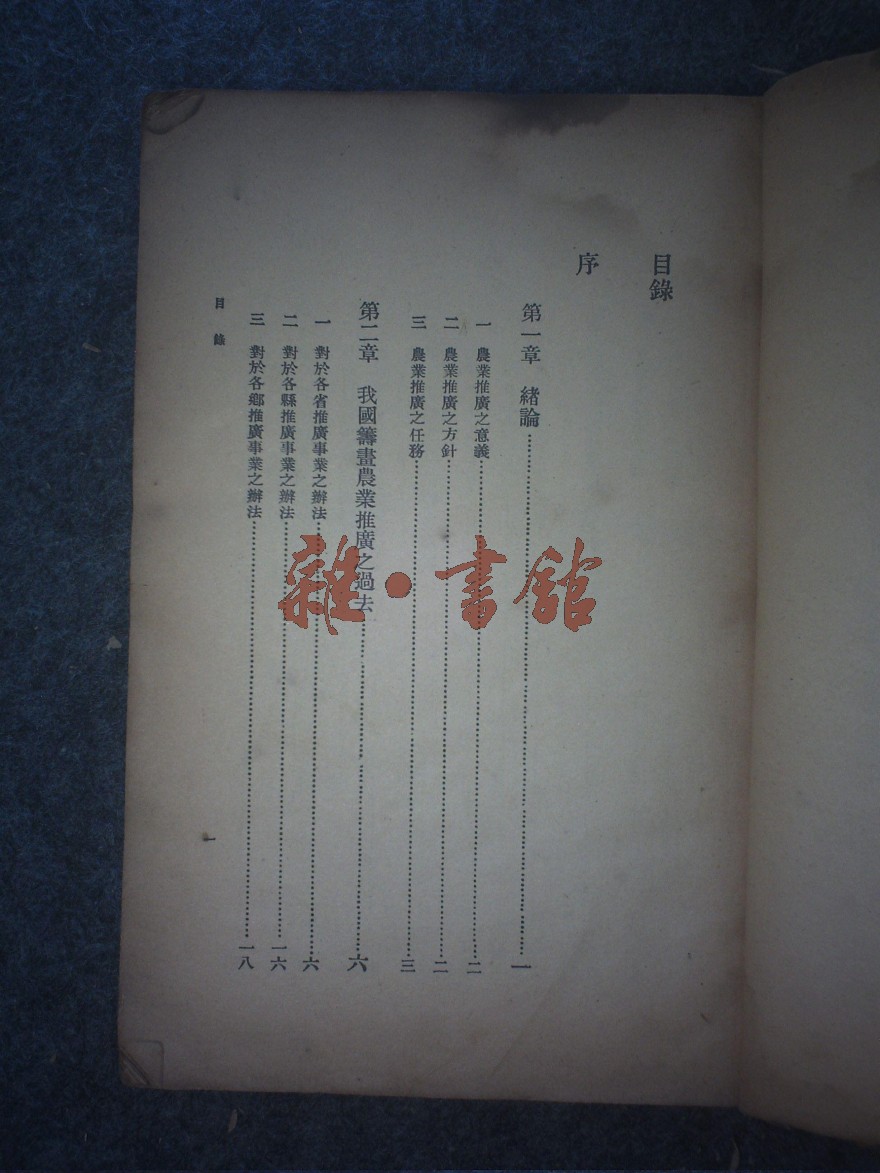 目錄
序
第一章 緒論……一
一 農業推廣之意義……二
二 農業推廣之方針……二
三 農業推廣之任務……三
第二章 我國籌畫農業推廣之過去……六
一 對於各省推廣事業之辦法……六
二 對於各縣推廣事業之辦法……一六
三 對於各鄉推廣事業之辦法……一八
目錄
一
雜·書館